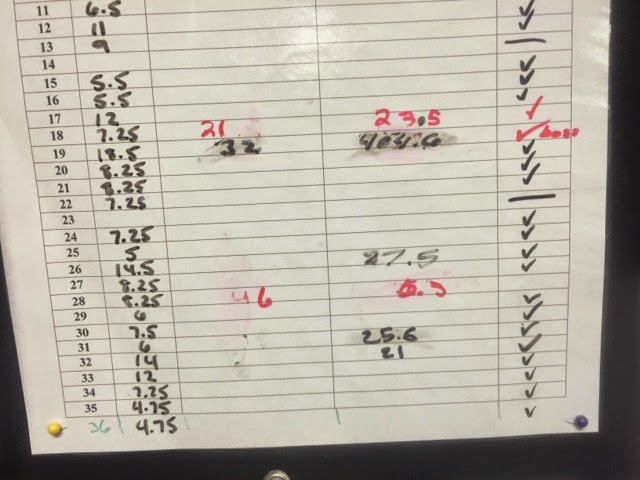 11 6.5
12 11
13 9 —
14 ✓
15 5.5 ✓
16 5.5 ✓
17 12 ✓
18 7.25 21 23.5 ✓
19 18.5 32 ✓
20 8.25 ✓
21 8.25 ✓
22 7.25 —
23 ✓
24 7.25 ✓
25 5 ✓
26 14.5 27.5 ✓
27 8.25
28 8.25 6 ✓
29 6 ✓
30 7.5 ✓
31 6 25.6 ✓
32 14 21 ✓
33 12 ✓
34 7.25 ✓
35 4.75 ✓
36 4.75 ✓